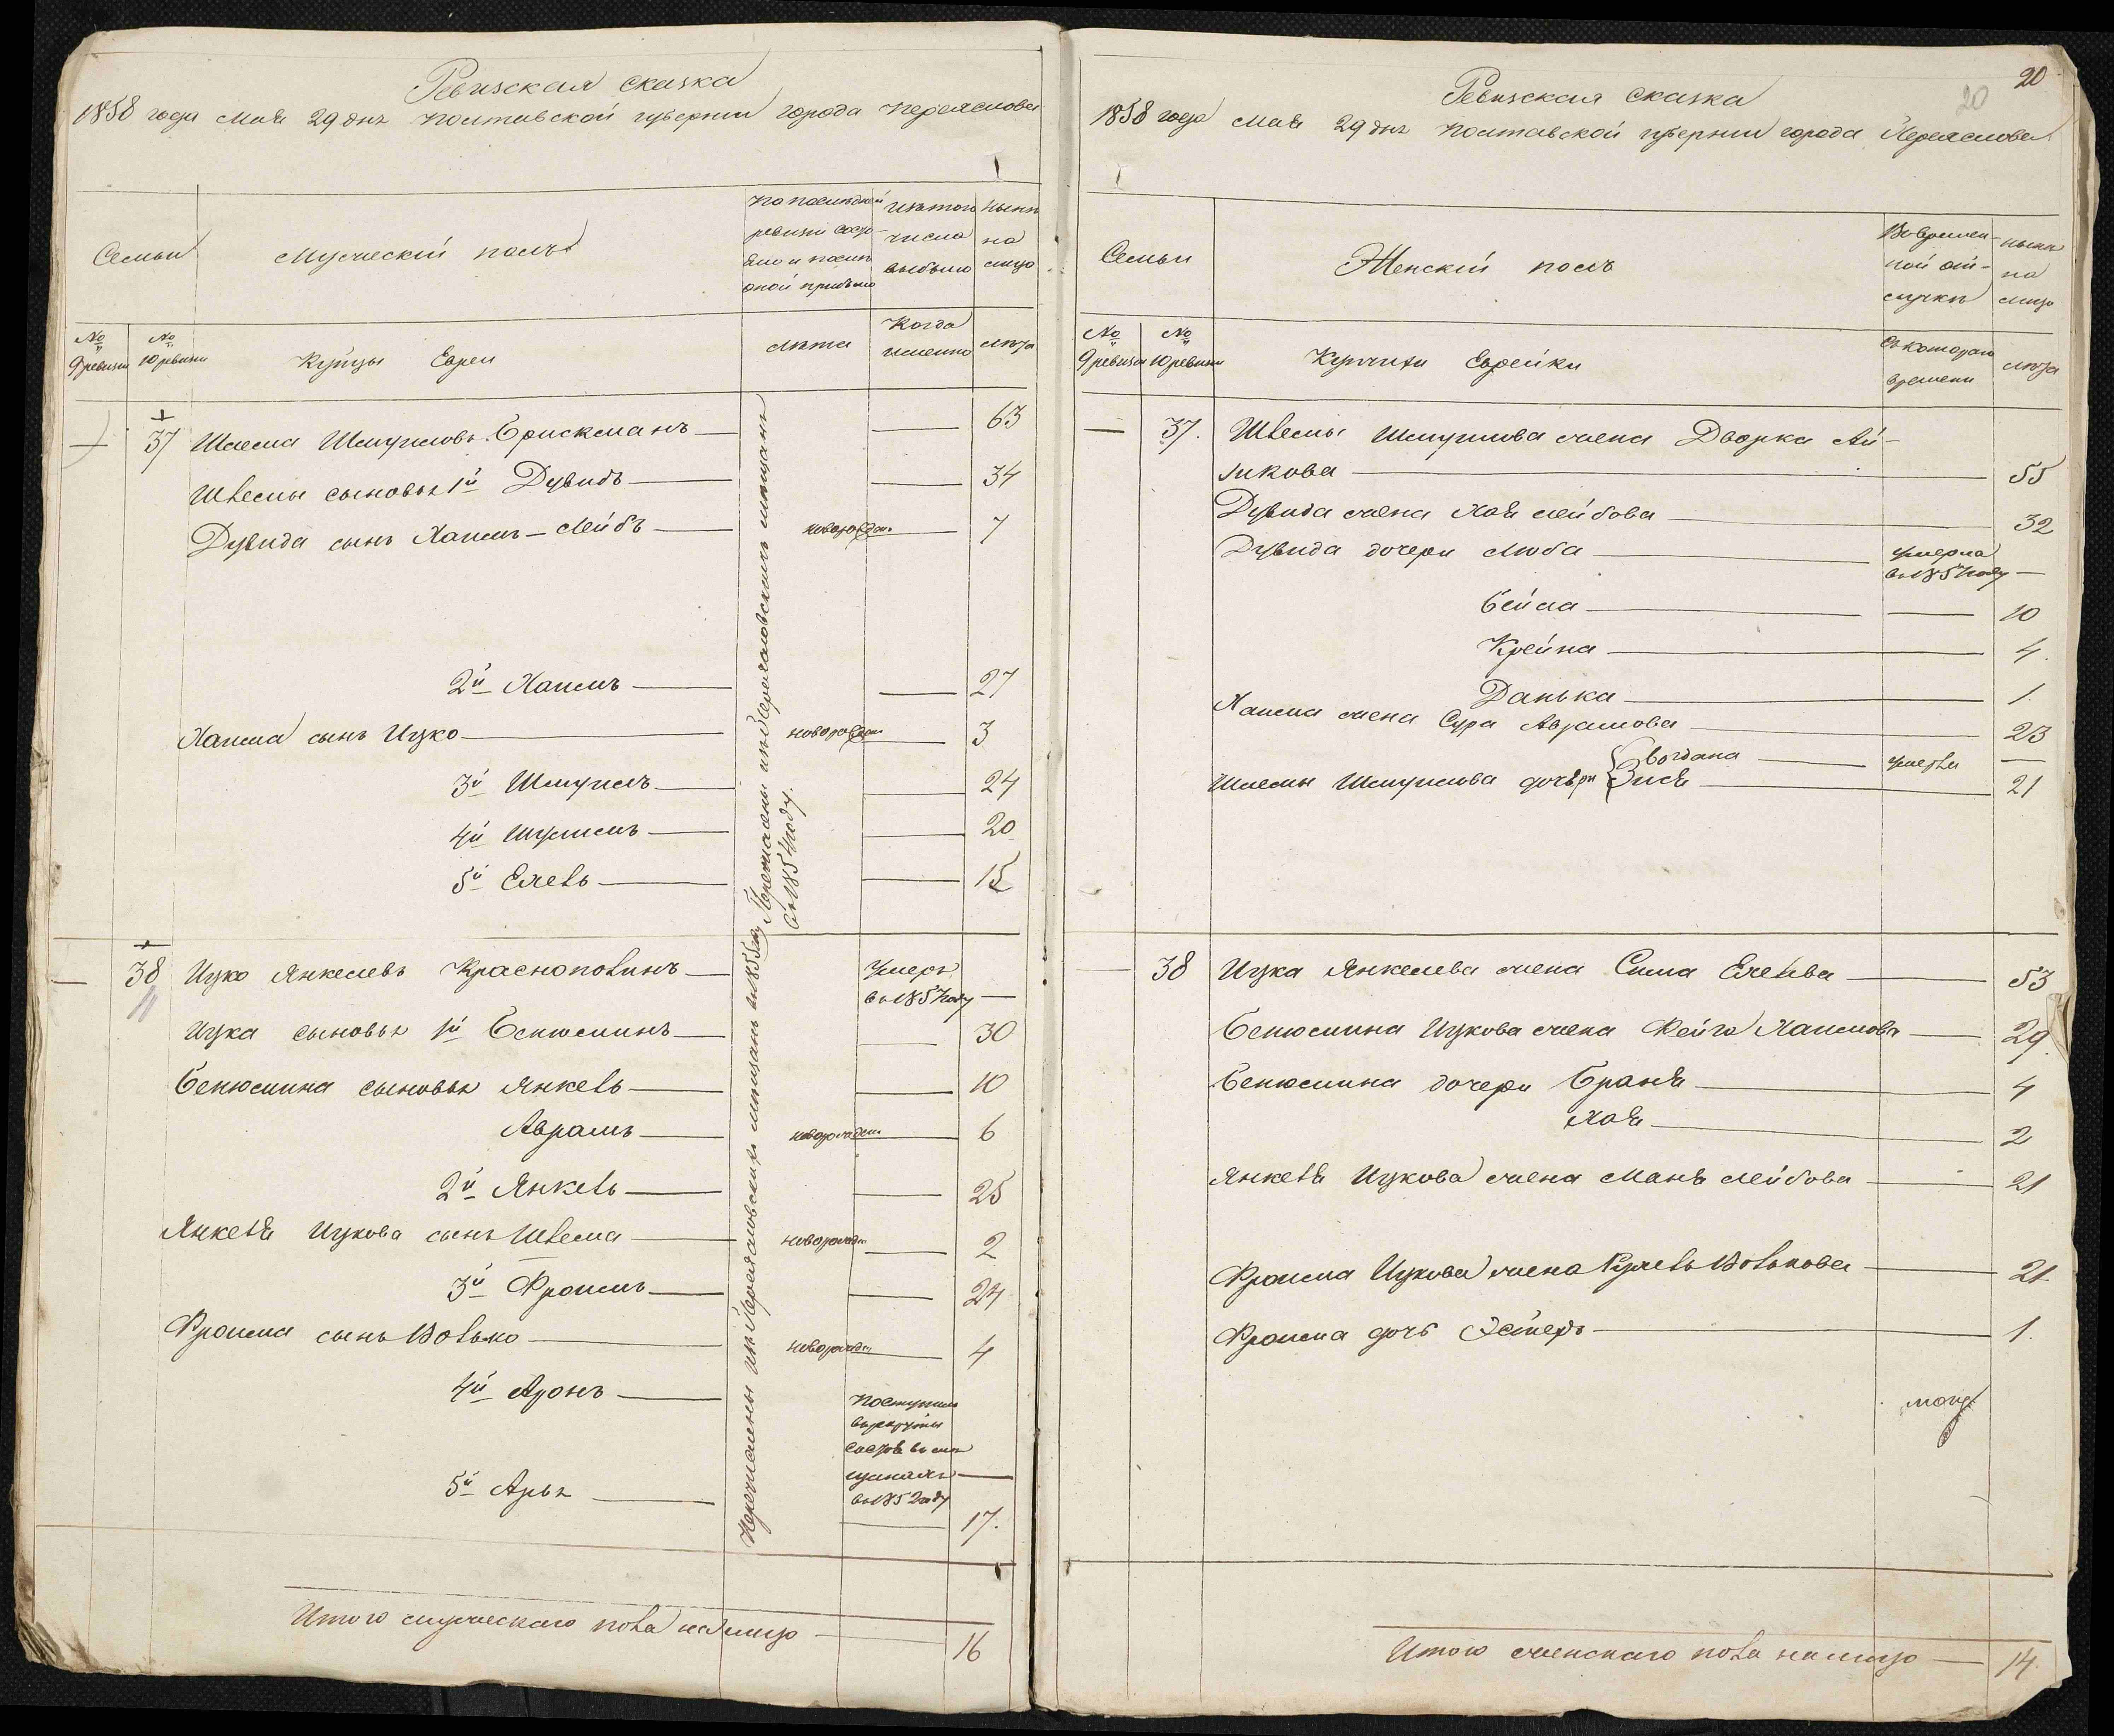 Ревизская сказка
1858 года Мая 29 дня Полтавской губернии города Переяслова
Семьи
Мужеский полъ
По последней ревизіи состояло и после оной прибыло
Изъ того числа выбыло
Ныне на лицо
№ 9 ревизіи
№ 10 ревизіи
Купцы Евреи
Лета
Когда именно
Лета
— 37 Шлема Шмулиовъ Брискманъ — — 63
Шлемы сыновья 1й Дувидъ — — 34
Дувида сынъ Хаимъ-Лейбъ — новорожден. — 7
2й Хаимъ — — 27
Хаима сынъ Ицко — новорожден — 3
3й Шмуилъ — — 24
4й Шулимъ — — 20
5й Елель — — 15
Перечислены изъ Переяславскихъ мещанъ
въ 1854 году.
— 38 Ицко Янкелевъ Краснополинъ — Умеръ
въ 1857 году —
Ицка сыновья 1й Бенюминъ — — 30
Бенюмина сыновья Янкель — — 10
Аврамъ — новорожден — 6
2й Янкель — — 25
Янкеля Ицкова сынъ Шлема — новорожден — 2
3й Фроимъ — — 24
Фроима сынъ Волько — новорожден — 4
4й Аронъ — Поступилъ
въ рекруты
въ 1852 году
5й Арья — — 17.
Перечислены изъ Переяславскихъ мещанъ
Итого мужескаго пола на лицо — 16
20
20
Ревизская сказка
1858 года Мая 29 дня Полтавской губернии города Переяслова
Семьи
Женскій полъ
Во временной отлучке
Ныне на лицо
№ 9 ревизіи
№ 10 ревизіи
Купчихи Еврейки
Съ котораго времени
Лета
— 37. Шлемы Шмуилова жена Дворка Ай-
зикова — 55
Дувида жена Хая Лейбова — 32
Дувида дочери Люба — умерла
въ 1857 году —
Бейла — — 10
Крейна — 4.
Данька — 1.
Хаима жена Сура Абрамова — 23
Богдана — умерла —
Шлемы Шмуилова дочери Зися — 21
— 38 Ицка Янкелева жена Сима Елелева — 53
Бенюмина Ицкова жена Фейга Хаимова — 29.
Бенюмина дочери Браня — 4
Хая — 2
Янкеля Ицкова жена Маня Лейбова — 21
Фроима Ицкова жена Волькова — 21
Фроима дочь Эстеръ — 1.
Итого женскаго пола на лицо — 14.